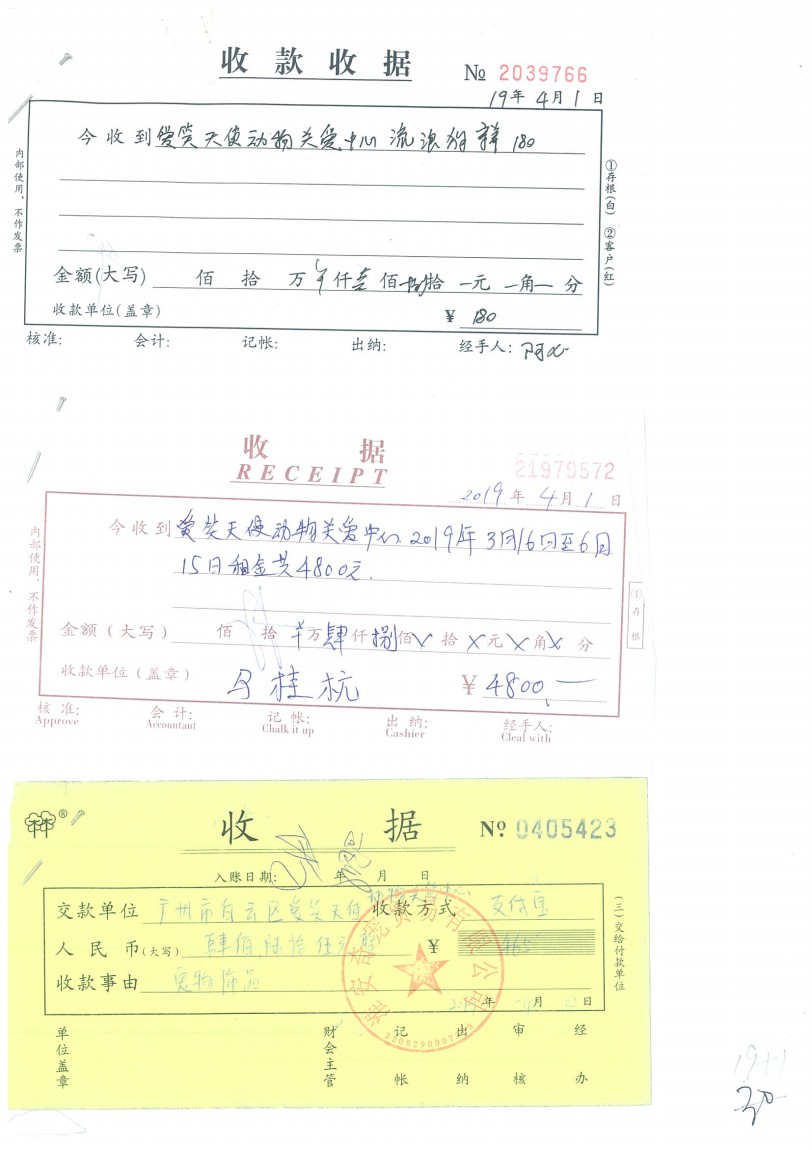 收款收据 № 2039766
19年 4月 1日
今收到 爱笑天使动物关爱中心 流浪狗 180
金额(大写) 佰 拾 万 仟 壹 佰 捌 拾 元 角 分
收款单位(盖章) ¥ 180
核准: 会计: 记帐: 出纳: 经手人:
内部使用,不作发票
①存根(白) ②客户(红)
收 据
RECEIPT 21979572
2019年 4月 1日
今收到 爱笑天使动物关爱中心 2019年3月16日至6月
15日租金共4800元.
金额(大写) 佰 拾 万 肆 仟 捌 佰 X 拾 X 元 X 角 X 分
收款单位(盖章) 马桂杭 ¥ 4800
核准: 会计: 记帐: 出纳: 经手人:
Approve Accountant Chalk it up Cashier Cleal with
内部使用,不作发票
①存根
®
收 据 Nº 0405423
入账日期: 年 月 日
动物关爱中心
交款单位 广州市白云区爱笑天使 收款方式 支付宝
人民币(大写) 肆佰陆拾伍元整 ¥ 465
收款事由 宠物
年 月 日
(三)交给付款单位
单位盖章 财会主管 记帐 出纳 审核 经办
19+1